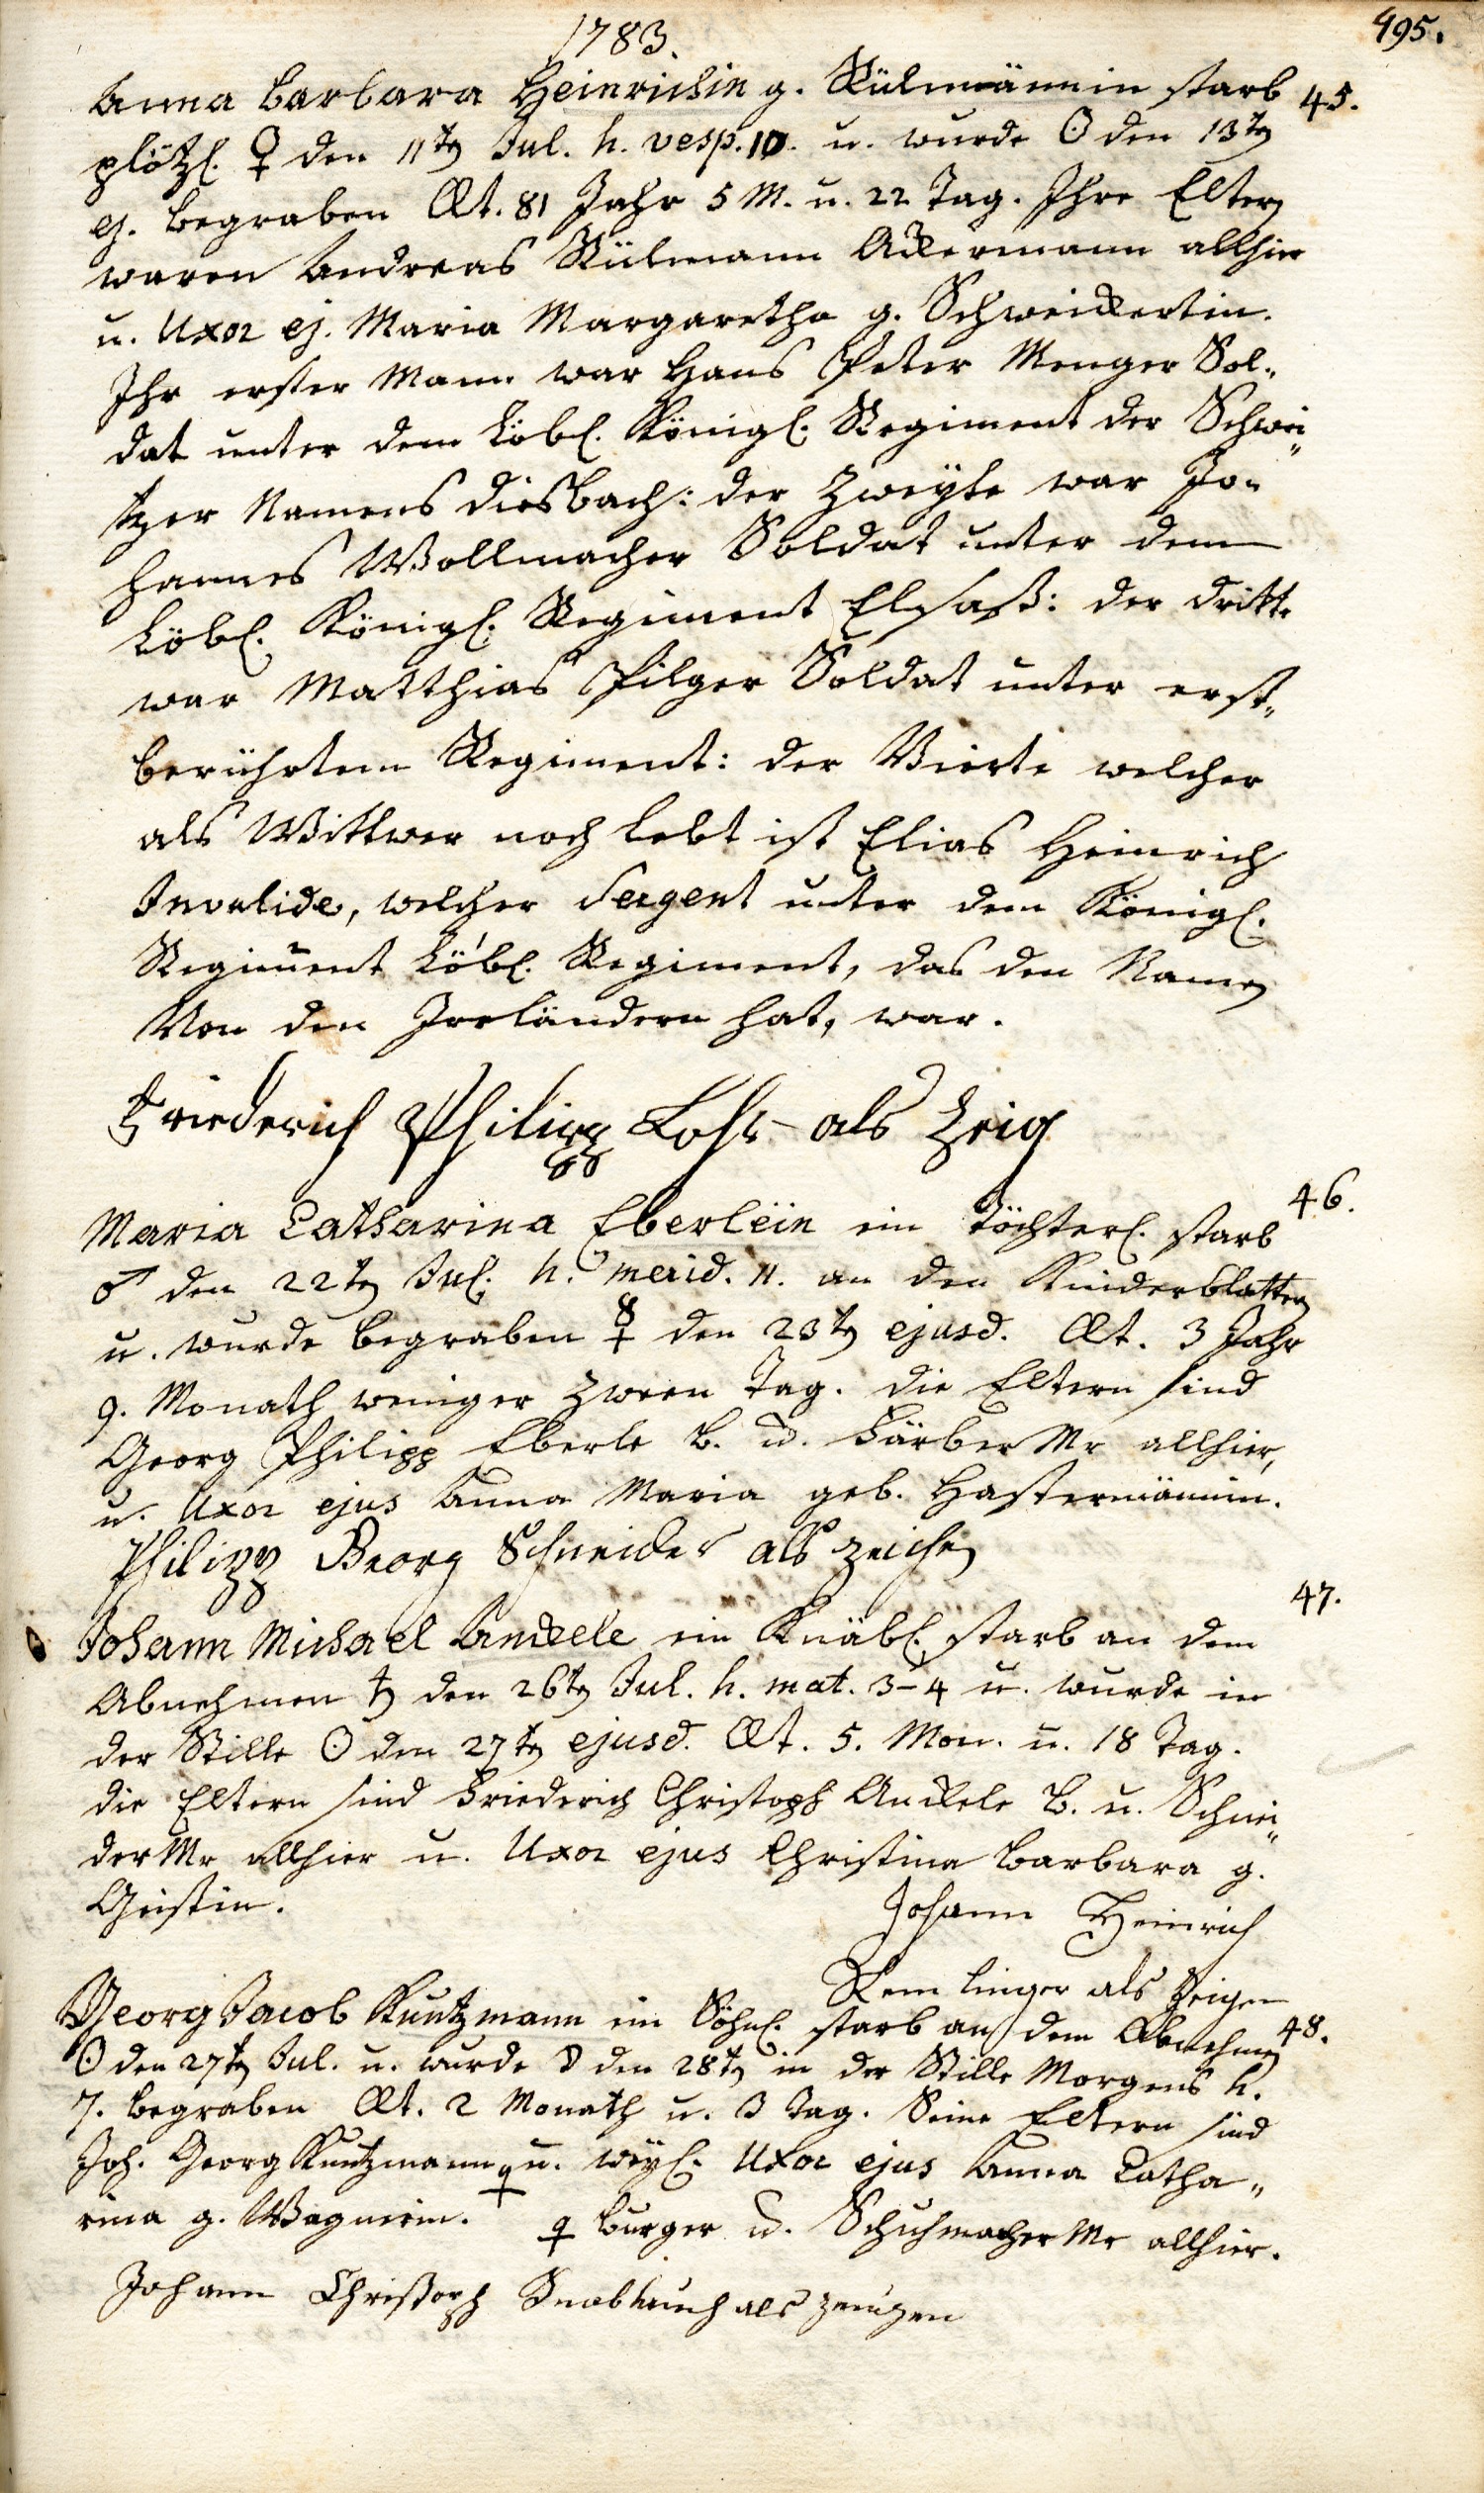 1783.
495.
Anna Barbara Heinrichin g. Külmännin starb 45.
plötzl. ♀ den 11ten Jul. h. vesp. 10. u. wurde ☉ den 13ten
ej. begraben Æt. 81 Jahr 5 M. u. 22 Tag. Ihre Eltern
waren Andreas Külmann Ackermann allhier
u. Uxor ej. Maria Margaretha g. Schweickertin.
Ihr erster Mann war Hans Peter Menger Sol-
dat unter dem Löbl. Königl. Regiment der Schwei-
tzer Namens Diesbach: der Zweyte war Jo-
hannes Wollmacher Soldat unter dem
Löbl. Königl. Regiment Elsaß: der dritte
war Matthias Pilger Soldat unter erst-
berührtem Regiment: der Vierte welcher
als Wittwer noch lebt ist Elias Heinrich
Invalide, welcher Sergent unter dem Königl.
Regiment Löbl. Regiment, das den Namen
Von den Irrländern hat, war.
Friederich Philipp Lohr als Zeig
Maria Catharina Eberlein ein Töchterl. starb 46.
♂ den 22ten Jul. h. merid. 11. an den Kinderblattern
u. wurde begraben ☿ den 23ten ejusd. Æt. 3 Jahr
9. Monath weniger zween Tag. die Eltern sind
Georg Philipp Eberle B. u. Färber Mr allhier,
u. Uxor ejus Anna Maria geb. Hastermännin.
Philipp Georg Schneider als zeichen
47.
Johann Michael Anckele ein Knäbl. starb an dem
Abnehmen ♄ den 26ten Jul. h. mat. 3-4 u. wurde in
der Stille ☉ den 27ten ejusd. Æt. 5. Mon. u. 18 Tag.
die Eltern sind Friederich Christoph Anckele B. u. Schnei-
der Mr allhier u. Uxor ejus Christina Barbara g.
Geistin.
Johann Heinrich
linger als Zeigen
Georg Jacob Kuntzmann ein Söhnl. starb an dem Abnehmen 48.
☉ den 27ten Jul. u. wurde ☽ den 28ten in der Stille Morgens h.
7. begraben Æt. 2 Monath u. 3 Tag. Seine Eltern sind
Joh. Georg Kuntzmann ♀ u. weyl. Uxor ejus Anna Catha-
rina g. Wagnerin. ♀ burger u. Schuhmacher Mr allhier.
Johann Christoph als zeugen